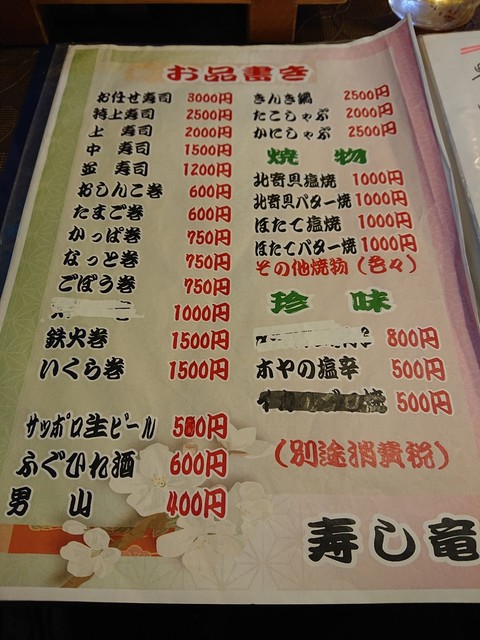 お品書き
お任せ寿司 3000円
特上寿司 2500円
上 寿司 2000円
中 寿司 1500円
並 寿司 1200円
おしんこ巻 600円
たまご巻 600円
かっぱ巻 750円
なっと巻 750円
ごぼう巻 750円
1000円
鉄火巻 1500円
いくら巻 1500円
サッポロ生ビール 500円
ふぐひれ酒 600円
男 山 400円
きんき鍋 2500円
たこしゃぶ 2000円
かにしゃぶ 2500円
焼 物
北寄貝塩焼 1000円
北寄貝バター焼 1000円
ほたて塩焼 1000円
ほたてバター焼 1000円
その他焼物（各々）
珍 味
800円
ホヤの塩辛 500円
500円
（別途消費税）
寿し竜